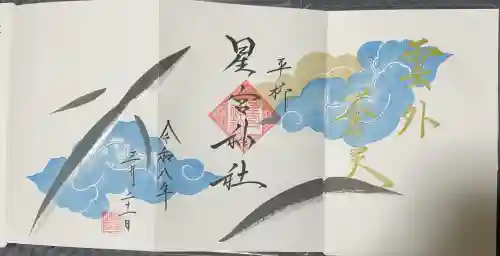 雲外
蒼天
平柳
星宮神社
令和八年
三月二十一日